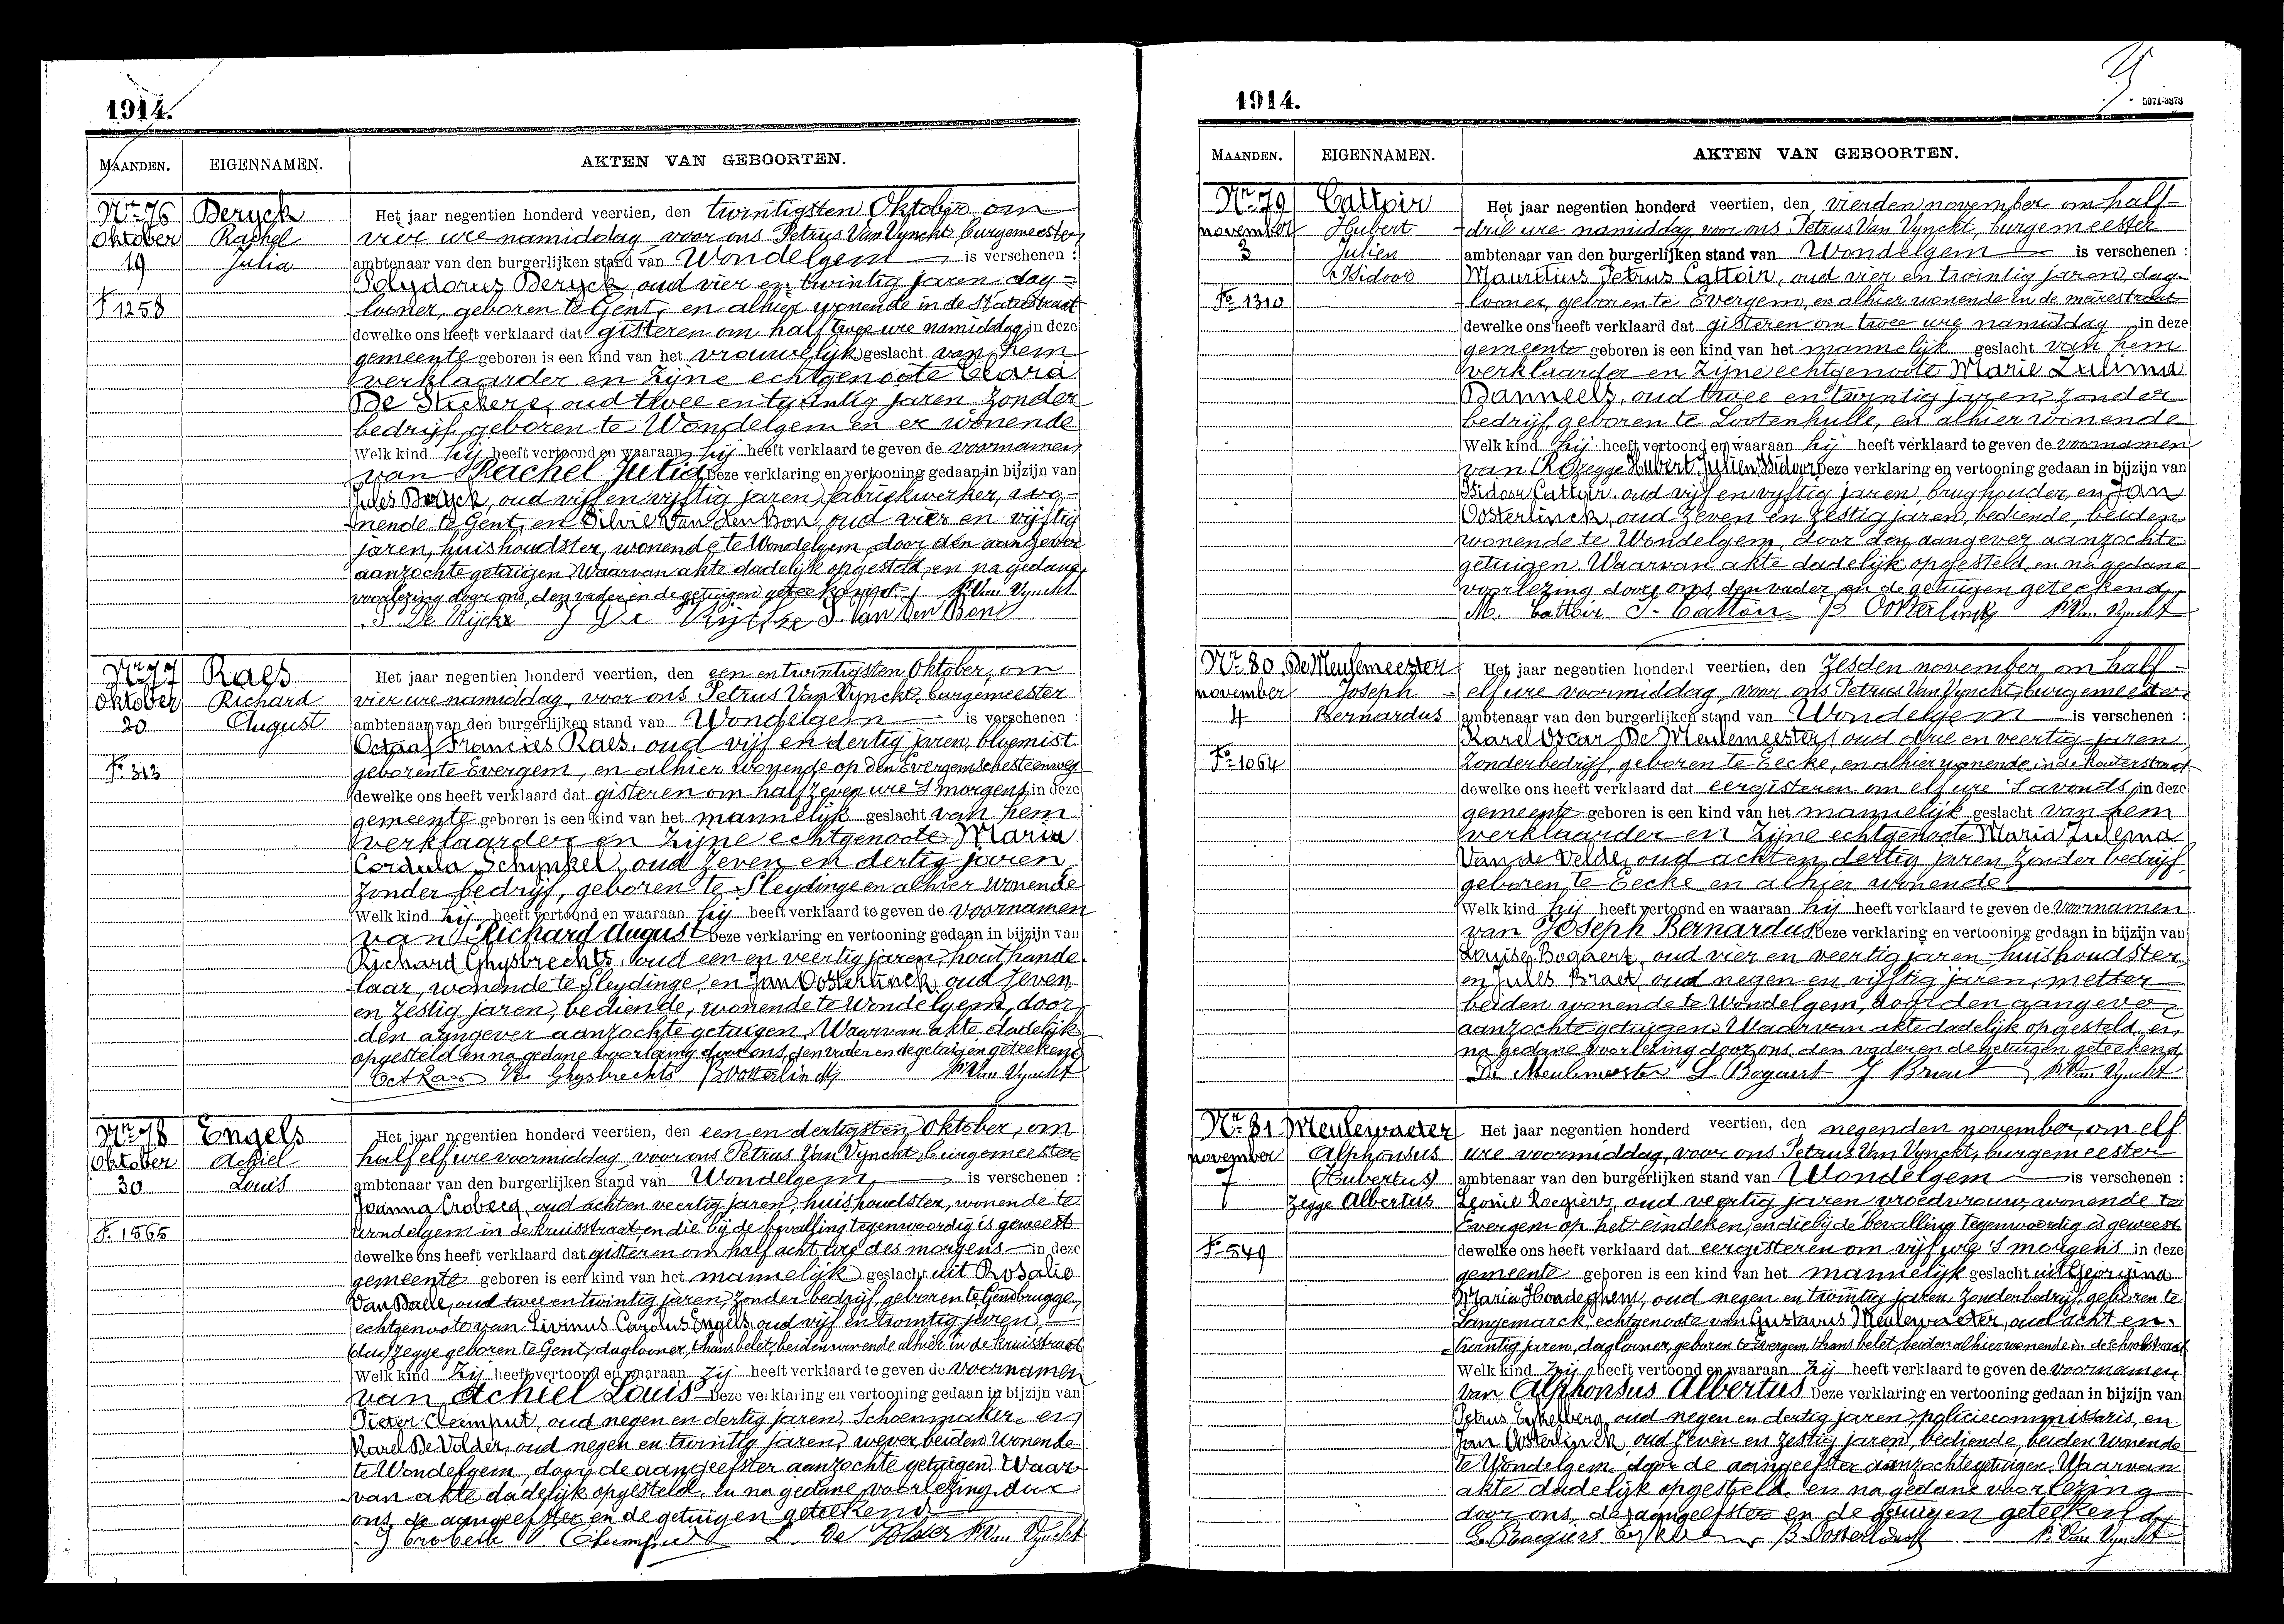 1914.
MAANDEN. EIGENNAMEN. AKTEN VAN GEBOORTEN.
Nr 76 Deryck
Oktober Rachel
19 Julia
F° 1258
Het jaar negentien honderd veertien, den twintigsten Oktober om
vier ure namiddag voor ons Petrus Van Vynckt, burgemeester
ambtenaar van den burgerlijken stand van Wondelgem is verschenen :
Polydorus Deryck, oud vier en twintig jaren dag=
looner, geboren te Gent, en alhier wonende in de Statiestraat
dewelke ons heeft verklaard dat gisteren om half twee ure namiddag in deze
gemeente geboren is een kind van het vrouwelijk geslacht van hem
verklaarder en zijne echtgenoote Clara
De oud twee en twintig jaren zonder
bedrijf, geboren te Wondelgem en er wonende
Welk kind hij heeft vertoond en waaraan hij heeft verklaard te geven de voornamen
van Rachel Julia Deze verklaring en vertooning gedaan in bijzijn van
Jules Deryck, oud vijf en vijftig jaren, fabriekwerker, wo-
nende te Gent, en Silvie Van den Bon, oud vier en vijftig
jaren, huishoudster, wonende te Wondelgem, door den aangever
aanzochte getuigen. Waarvan akte dadelijk opgesteld, en na gedane
voorlezing door ons, den vader en de getuigen geteekend. P. Van Vynckt
De Rijcke S. Van Den Bon
Nr 77 Raes
Oktober Richard
20 August
F° 313
Het jaar negentien honderd veertien, den een en twintigsten Oktober, om
vier ure namiddag, voor ons Petrus Van Vynckt, burgemeester
ambtenaar van den burgerlijken stand van Wondelgem is verschenen :
Octaaf Francies Raes, oud vijf en dertig jaren, bloemist
geboren te Evergem, en alhier wonende op den Evergemschesteenweg
dewelke ons heeft verklaard dat gisteren om half zeven ure 's morgens in deze
gemeente geboren is een kind van het mannelijk geslacht van hem
verklaarder en zijne echtgenoote Maria
Cordula Schynkel, oud zeven en dertig jaren
zonder bedrijf, geboren te Sleydinge en alhier wonende
Welk kind hij heeft vertoond en waaraan hij heeft verklaard te geven de voornamen
van Richard August Deze verklaring en vertooning gedaan in bijzijn van
Richard Ghysbrechts, oud een en veertig jaren, houthande
laar, wonende te Sleydinge, en Jan Oosterlinck, oud zeven
en zestig jaren, bediende, wonende te Wondelgem, door
den aangever aanzochte getuigen. Waarvan akte dadelijk
opgesteld en na gedane voorlezing door ons, den vader en de getuigen geteekend
Oct Raes Ghysbrechts B Oosterlinck P. Van Vynckt
Nr 78 Engels
Oktober Achiel
30 Louis
F° 1565
Het jaar negentien honderd veertien, den een en dertigsten Oktober, om
half elf ure voormiddag, voor ons Petrus Van Vynckt, burgemeester
ambtenaar van den burgerlijken stand van Wondelgem is verschenen :
Joanna Crobecq, oud acht en veertig jaren, huishoudster, wonende te
Wondelgem in de kruisstraat, en die bij de bevalling tegenwoordig is geweest
dewelke ons heeft verklaard dat gisteren om half acht ure des morgens in deze
gemeente geboren is een kind van het mannelijk geslacht uit Rosalie
Van Daele, oud twee en twintig jaren, zonder bedrijf, geboren te Gendbrugge,
echtgenoote van Livinus Carolus Engels, oud vijf en twintig jaren,
zegge geboren te Gent, daglooner, thans belet, beiden wonende alhier in de kruisstraat
Welk kind zij heeft vertoond en waaraan zij heeft verklaard te geven de voornamen
van Achiel Louis Deze verklaring en vertooning gedaan in bijzijn van
Pieter Cleemput, oud negen en dertig jaren, Schoenmaker, en
Karel De Volder, oud negen en twintig jaren, wever, beiden wonende
te Wondelgem, door de aangeefster aanzochte getuigen. Waar
van akte dadelijk opgesteld, en na gedane voorlezing door
ons, de aangeefster en de getuigen geteekend
J Crobeck Cleemput De Volder P. Van Vynckt
1914.
5971-3373
MAANDEN. EIGENNAMEN. AKTEN VAN GEBOORTEN.
Nr 79 Cattoir
november Hubert
3 Julien
Isidoor
F° 1310
Het jaar negentien honderd veertien, den vierden november om half
drie ure namiddag voor ons Petrus Van Vynckt, burgemeester
ambtenaar van den burgerlijken stand van Wondelgem is verschenen :
Mauritius Petrus Cattoir, oud vier en twintig jaren, dag-
looner, geboren te Evergem, en alhier wonende in de meirestraat
dewelke ons heeft verklaard dat gisteren om twee ure namiddag in deze
gemeente geboren is een kind van het mannelijk geslacht van hem
verklaarder en zijne echtgenoote Marie Zulima
Danneels, oud twee en twintig jaren, zonder
bedrijf, geboren te Lootenhulle, en alhier wonende
Welk kind hij heeft vertoond en waaraan hij heeft verklaard te geven de voornamen
van zegge Hubert Julien Isidoor Deze verklaring en vertooning gedaan in bijzijn van
Isidoor Cattoir, oud vijf en vijftig jaren, brughouder, en Jan
Oosterlinck, oud zeven en zestig jaren, bediende, beiden
wonende te Wondelgem, door den aangever aanzochte
getuigen. Waarvan akte dadelijk opgesteld, en na gedane
voorlezing door ons, den vader en de getuigen geteekend
M. Cattoir I. Cattoir B Oosterlinck P. Van Vynckt
Nr 80 De Meulemeester
november Joseph
4 Bernardus
F° 1064
Het jaar negentien honderd veertien, den zesden november, om half
elf ure voormiddag, voor ons Petrus Van Vynckt, burgemeester
ambtenaar van den burgerlijken stand van Wondelgem is verschenen :
Karel Oscar De Meulemeester, oud drie en veertig jaren,
zonder bedrijf, geboren te Eecke, en alhier wonende in de kouterstraat
dewelke ons heeft verklaard dat eergisteren om elf ure 's avonds, in deze
gemeente geboren is een kind van het mannelijk geslacht van hem
verklaarder en zijne echtgenoote Maria Zulema
Van de Velde, oud acht en dertig jaren, zonder bedrijf,
geboren te Eecke en alhier wonende.
Welk kind hij heeft vertoond en waaraan hij heeft verklaard te geven de voornamen
van Joseph Bernardus Deze verklaring en vertooning gedaan in bijzijn van
Louise Bogaert, oud vier en veertig jaren huishoudster,
en Jules Braet, oud negen en vijftig jaren, metser
beiden wonende te Wondelgem, door den aangever
aanzochte getuigen. Waarvan akte dadelijk opgesteld, en
na gedane voorlezing door ons, den vader en de getuigen geteekend
De Meulemeester L Bogaert J Braet P. Van Vynckt
Nr 81 Meulewaeter
november Alphonsus
7 (Hubertus)
zegge Albertus
F° 549
Het jaar negentien honderd veertien, den negenden november, om elf
ure voormiddag, voor ons Petrus Van Vynckt, burgemeester
ambtenaar van den burgerlijken stand van Wondelgem is verschenen :
Leonie Roegiers, oud veertig jaren vroedvrouw, wonende te
Evergem op het eindeken, en die bij de bevalling tegenwoordig is geweest
dewelke ons heeft verklaard dat eergisteren om vijf ure 's morgens in deze
gemeente geboren is een kind van het mannelijk geslacht uit Georgina
Maria Hondeghem, oud negen en twintig jaren, zonder bedrijf, geboren te
Langemarck, echtgenoote van Gustavus Meulewaeter, oud acht en
twintig jaren, daglooner, geboren te Evergem, thans belet, beiden alhier wonende in de schoolstraat
Welk kind zij heeft vertoond en waaraan zij heeft verklaard te geven de voornamen
van Alphonsus Albertus Deze verklaring en vertooning gedaan in bijzijn van
Petrus Eykelberg, oud negen en dertig jaren, policiecommissaris, en
Jan Oosterlinck, oud zeven en zestig jaren, bediende, beiden wonende
te Wondelgem, door de aangeefster aanzochte getuigen. Waarvan
akte dadelijk opgesteld, en na gedane voorlezing
door ons, de aangeefster en de getuigen geteekend.
L. Roegiers B. Oosterlinck P. Van Vynckt